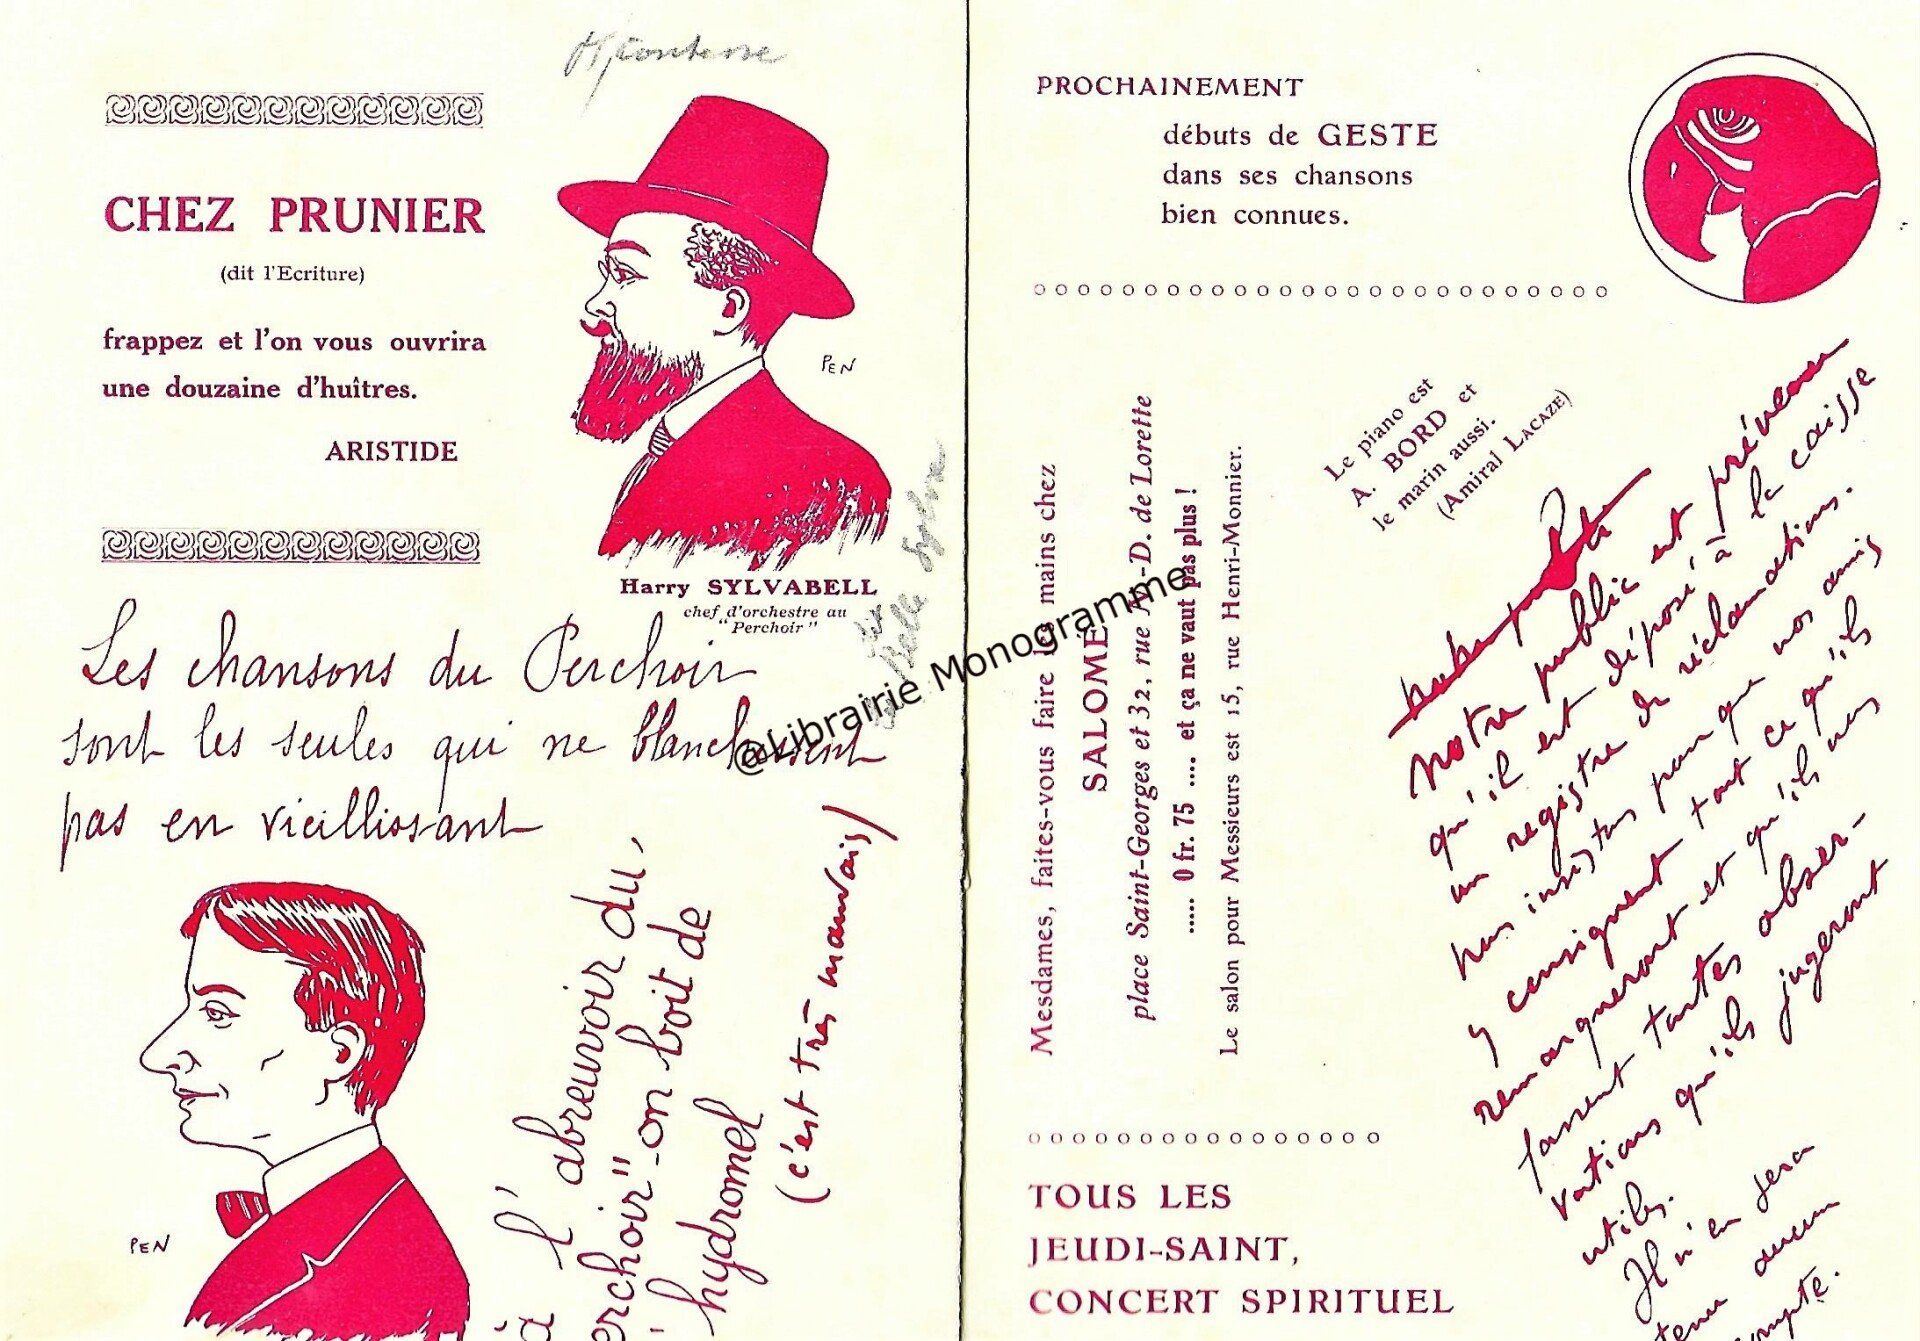 CHEZ PRUNIER
(dit l'Ecriture)
frappez et l'on vous ouvrira
une douzaine d'huîtres.
ARISTIDE
PEN
Harry SYLVABELL
chef d'orchestre au
"Perchoir"
Les chansons du Perchoir
sont les seules qui ne blanchissent
pas en vieillissant
PEN
à l'abreuvoir du,
erchoir"-on boit de
hydromel
(c'est très mauvais)
@Librairie Monogramme
PROCHAINEMENT
débuts de GESTE
dans ses chansons
bien connues.
Le piano est
A. BORD et
le marin aussi.
(Amiral LACAZE)
Mesdames, faites-vous faire les mains chez
SALOMÉ
place Saint-Georges et 32, rue N.-D. de Lorette
..... 0 fr. 75 .... et ça ne vaut pas plus !
Le salon pour Messieurs est 15, rue Henri-Monnier.
Notre public est prévenu
qu'il est déposé à la caisse
un registre de réclamations.
nous insistons pour que nos amis
y consignent tout ce qu'ils
remarqueront et qu'ils nous
fassent toutes obser-
vations qu'ils jugeront
utiles.
Il n'en sera
tenu aucun
compte.
TOUS LES
JEUDI-SAINT,
CONCERT SPIRITUEL